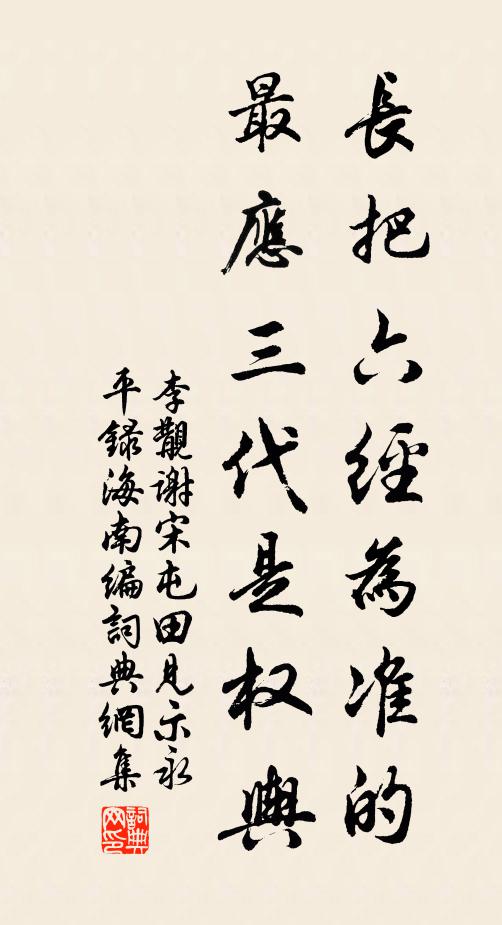 長把六經為准的
最應三代是权輿
李覯謝宋屯田見示永
平錄海南編詞典網集
詞典
网印